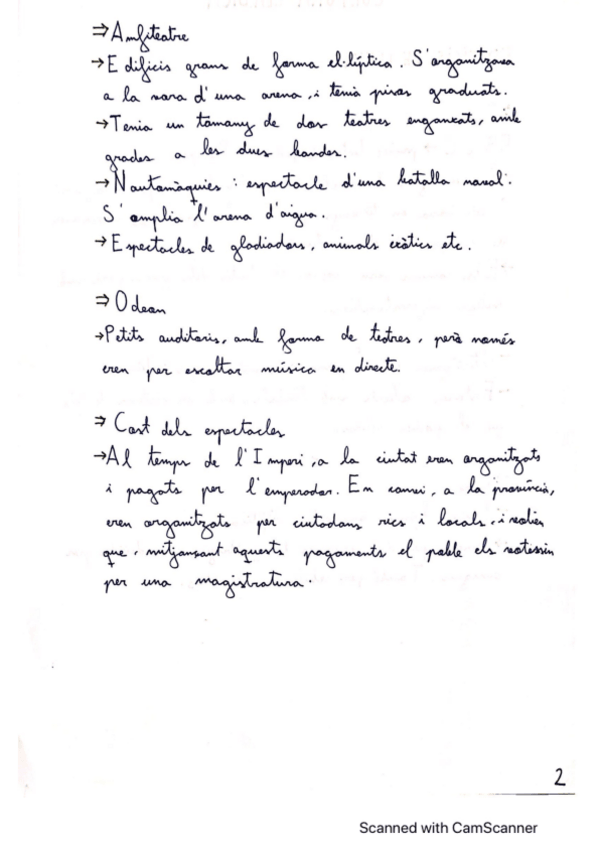 ⇒ Amfiteatre
→ Edificis grans de forma el·líptica. S'organitzava
a la vora d'una arena, i tenia pisos graduats.
→ Tenia un tamany de dos teatres enganxats, amb
grades a les dues bandes.
→ Nautomàquies: espectacle d'una batalla naval.
S'amplia l'arena d'aigua.
→ Espectacles de gladiadors, animals exòtics etc.
⇒ Odeon
→ Petits auditoris, amb forma de teatres, però només
eren per escoltar música en directe.
⇒ Cost dels espectacles
→ Al temps de l'Imperi, a la ciutat eren organitzats
i pagats per l'emperador. En canvi, a la província,
eren organitzats per ciutadans rics i locals, i volien
que, mitjansant aquests pagaments el poble els votessin
per una magistratura.
2
Scanned with CamScanner